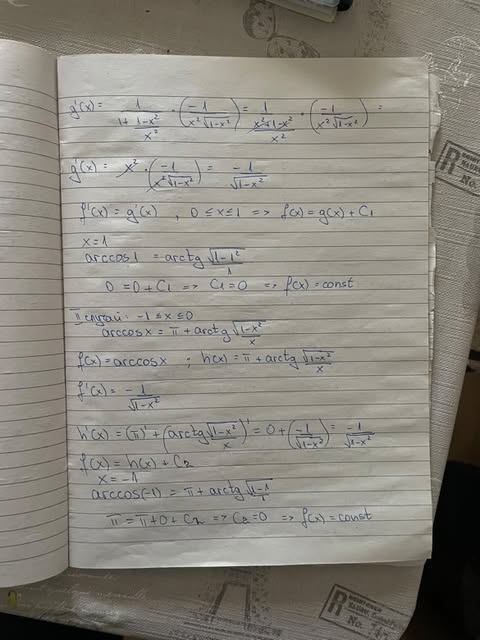 g'(x) = 1/(1+(1-x²)/x²) · (-1/(x²√(1-x²))) = 1/((x²+1-x²)/x²) · (-1/(x²√(1-x²))) =
g'(x) = x² · (-1/(x²√(1-x²))) = -1/√(1-x²)
f'(x) = g'(x) , 0 ≤ x ≤ 1 => f(x) = g(x) + C₁
x = 1
arccos 1 = arctg √(1-1²)/1
0 = 0 + C₁ => C₁ = 0 => f(x) = const
II случай: -1 ≤ x ≤ 0
arccos x = π + arctg √(1-x²)/x
f(x) = arccos x ; h(x) = π + arctg √(1-x²)/x
f'(x) = -1/√(1-x²)
h'(x) = (π)' + (arctg √(1-x²)/x)' = 0 + (-1/√(1-x²)) = -1/√(1-x²)
f(x) = h(x) + C₂
x = -1
arccos(-1) = π + arctg √(1-1)/1
π = π + 0 + C₂ => C₂ = 0 => f(x) = const
R
No.
R
No.